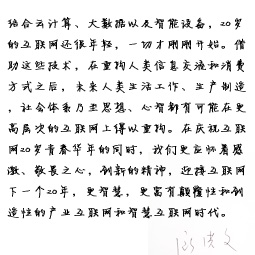 结合云计算、大数据以及智能设备，20岁
的互联网还很年轻，一切才刚刚开始。借
助这些技术，在重构人类信息交流和消费
方式之后，未来人类生活工作、生产制造
，社会体系乃至思想、心智都有可能在更
高层次的互联网上得以重构。在庆祝互联
网20岁青春华年的同时，我们更应怀着感
激、敬畏之心，创新的精神，迎接互联网
下一个20年，更智慧，更富有颠覆性和创
造性的产业互联网和智慧互联网时代。